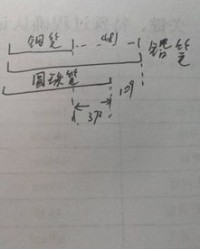 钢笔 481 铅笔
圆珠笔
109
370